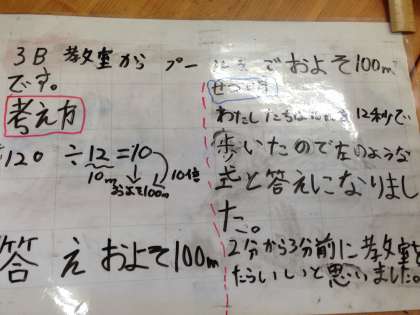 3B 教室から プールまでおよそ100m
です。
考え方
120 ÷12=10
10m 10倍
およそ100m
答え およそ100m
せつ明
わたしたちは 12秒で
歩いたので左のような
式と答えになりまし
た。
2分から3分前に教室を
たらいいと思いました。